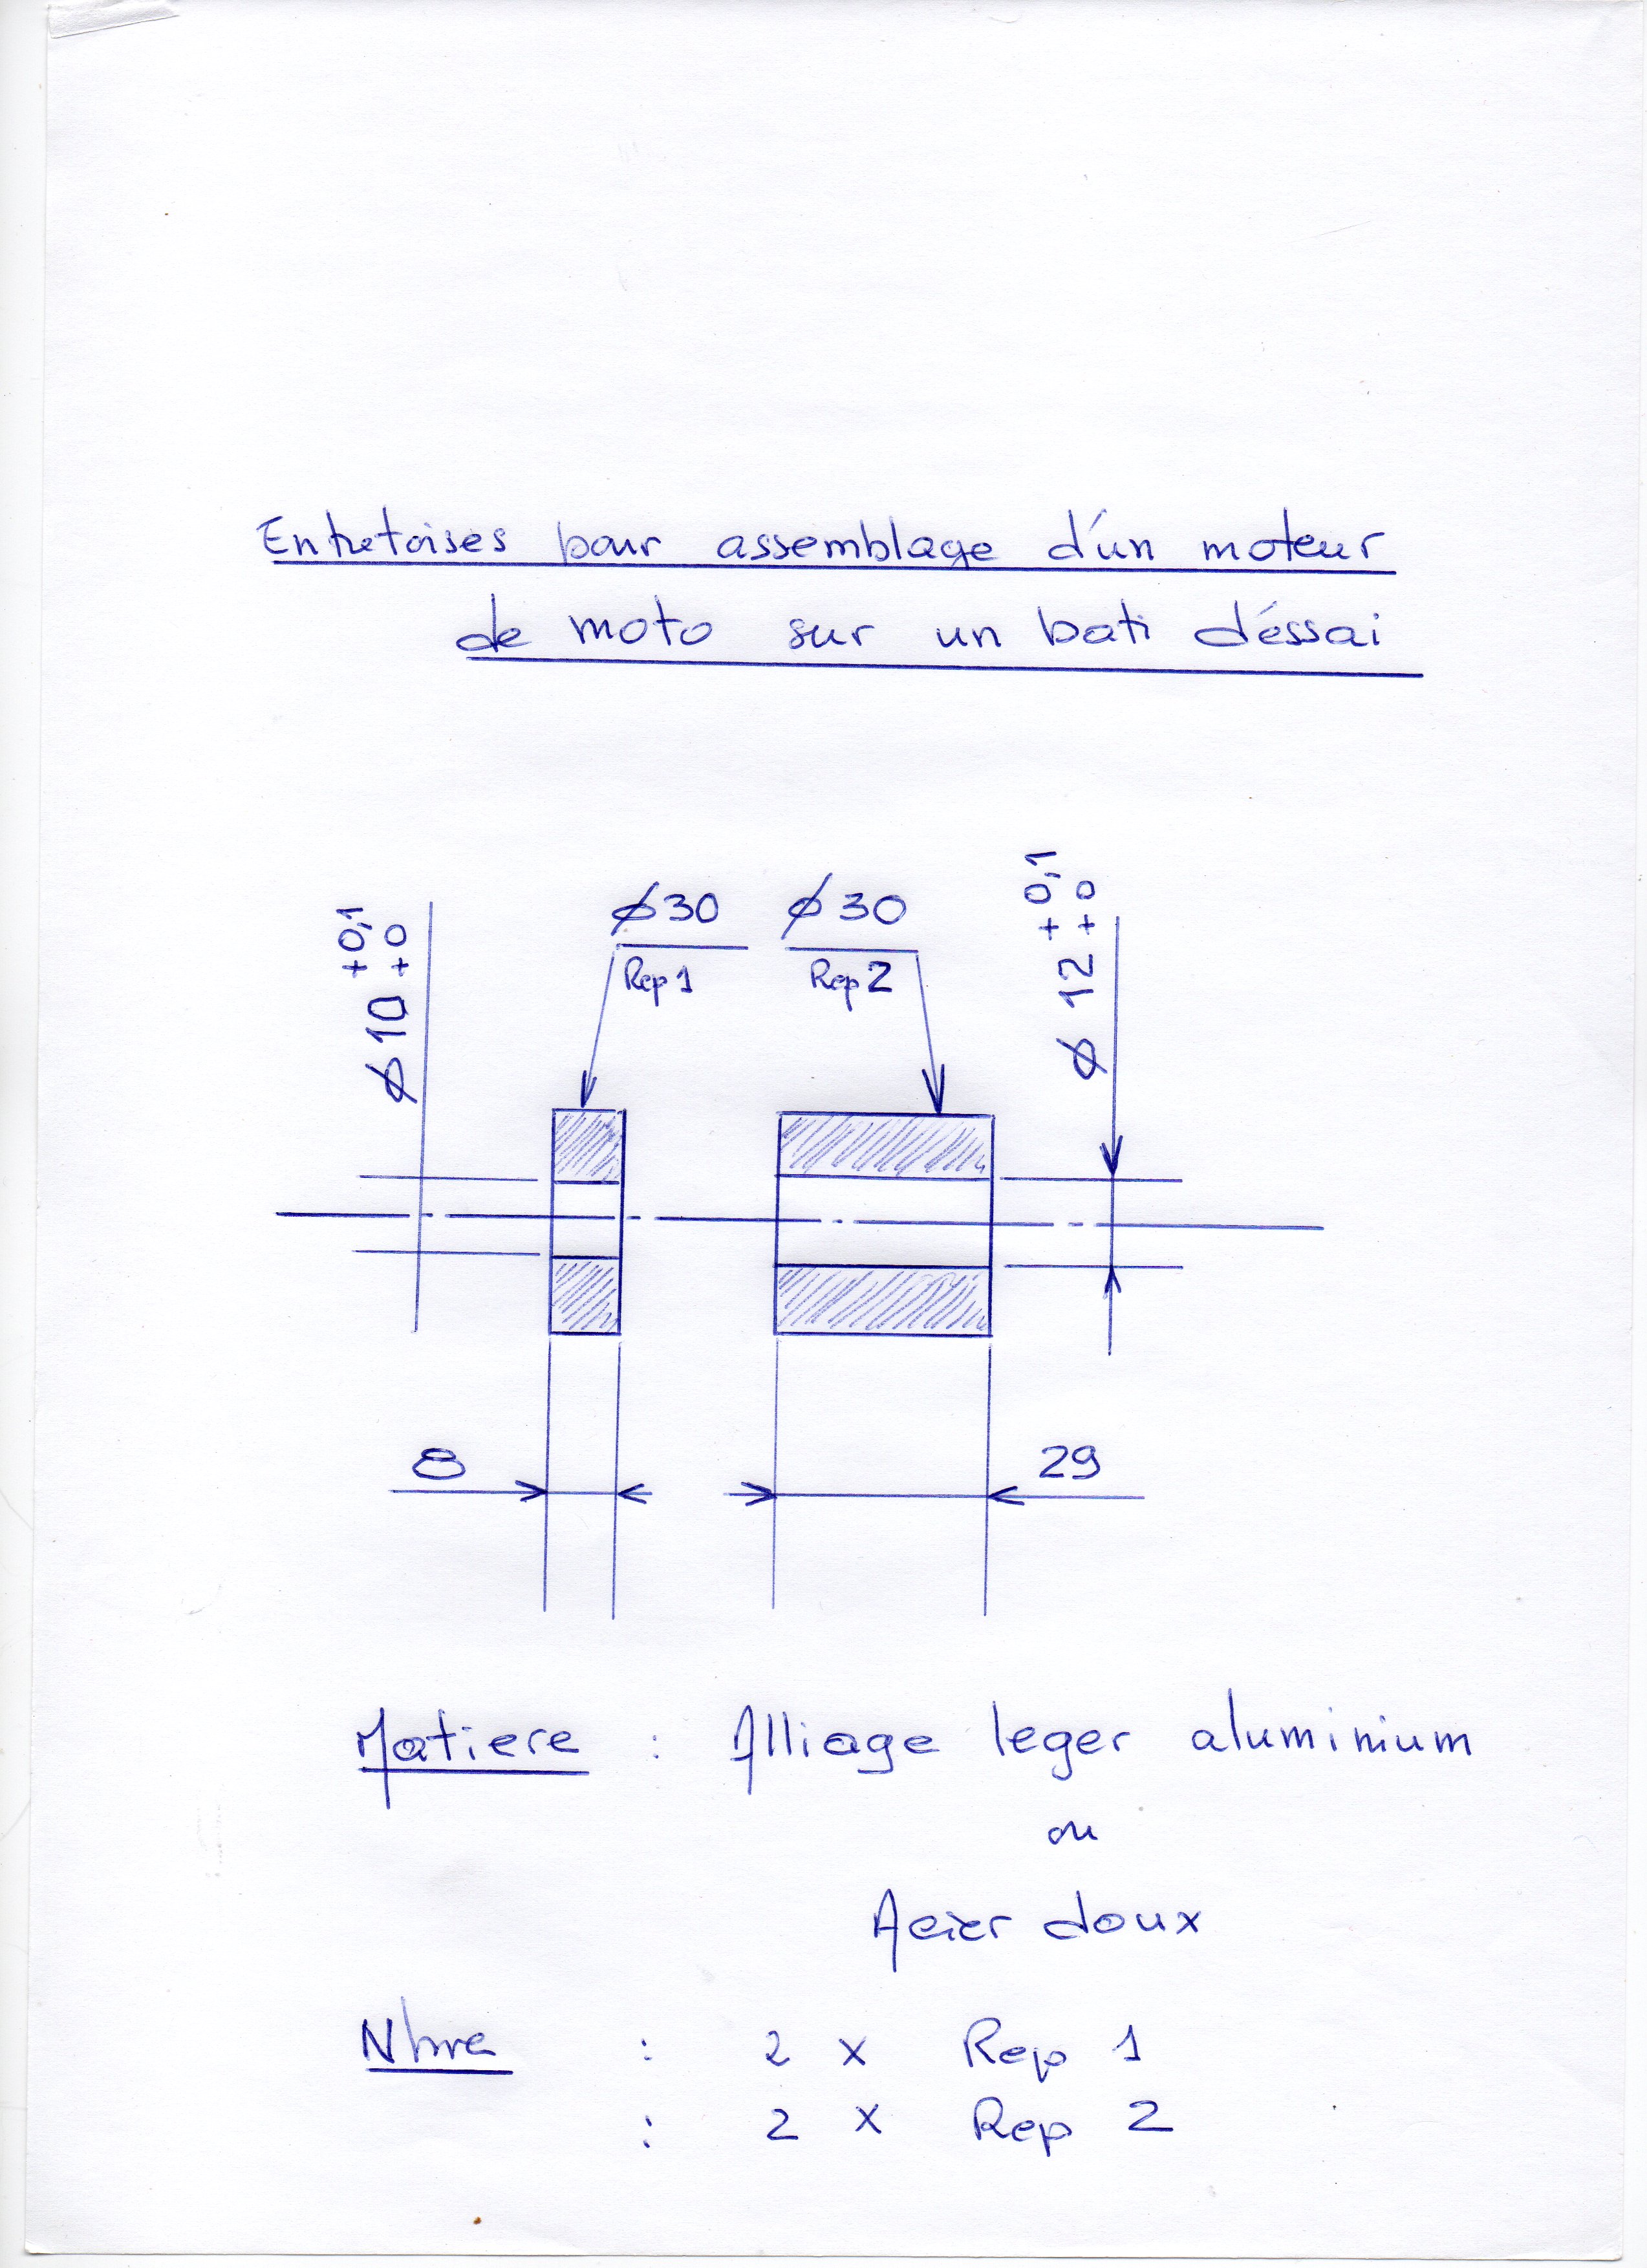 Entretoises pour assemblage d'un moteur
de moto sur un bati d'éssai
ø10 +0,1 +0
ø30 ø30
Rep 1 Rep 2
ø 12 +0,1 +0
8 29
Matiere : Alliage leger aluminium
ou
Acier doux
Nbre : 2 x Rep 1
: 2 x Rep 2